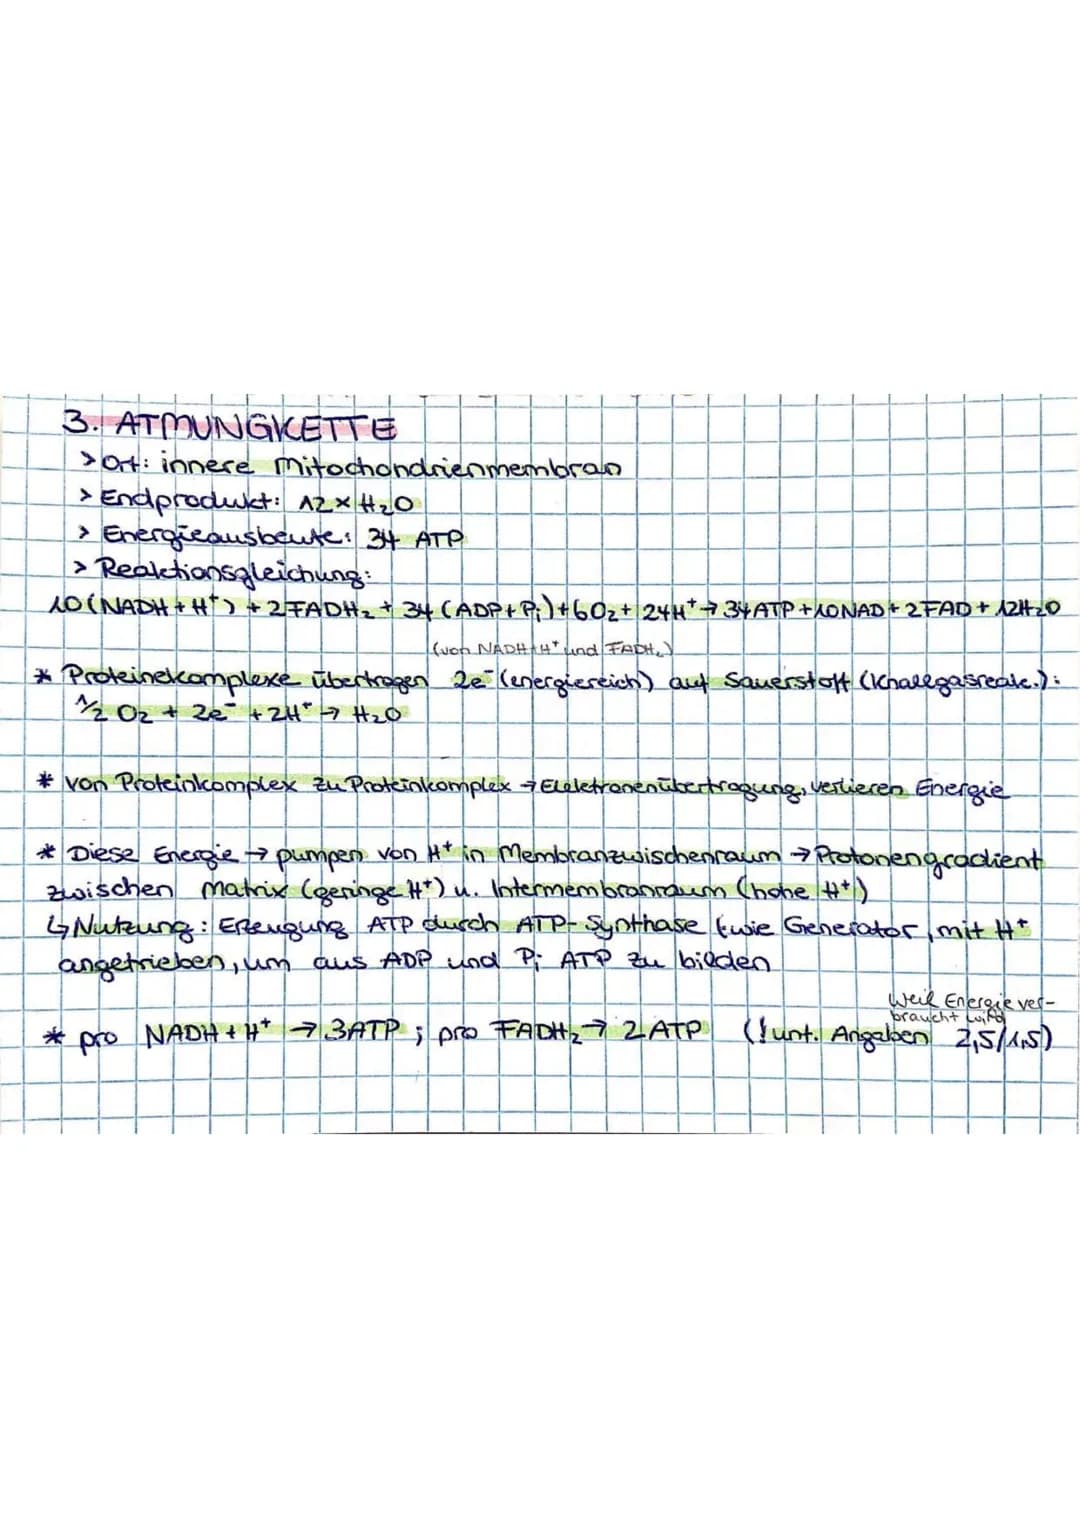 3. ATMUNGKETTE
> Ort: innere Mitochondrienmembran
> Endprodukt: 12 x H₂O
> Energieausbeute: 34 ATP
> Reaktionsgleichung:
10 (NADH + H⁺) + 2 FADH₂ + 34 (ADP + Pᵢ) + 6O₂ + 24H⁺ → 34 ATP + 10 NAD + 2 FAD + 12H₂O
(von NADH+H⁺ und FADH₂)
* Proteinekomplexe übertragen 2e⁻ (energiereich) auf Sauerstoff (Knallgasreak.):
1/2 O₂ + 2e⁻ + 2H⁺ → H₂O
* von Proteinkomplex zu Proteinkomplex → Elektronenübertragung, verlieren Energie
* Diese Energie → pumpen von H⁺ in Membranzwischenraum → Protonengradient
zwischen Matrix (geringe H⁺) u. Intermembranraum (hohe H⁺)
↳ Nutzung: Erzeugung ATP durch ATP-Synthase (wie Generator, mit H⁺
angetrieben, um aus ADP und Pᵢ ATP zu bilden
Weil Energie ver-
braucht wird
* pro NADH + H⁺ → 3ATP ; pro FADH₂ → 2 ATP (! unt. Angaben 2,5/1,5)